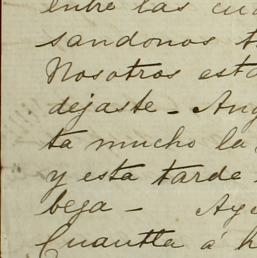 entre las cu
sandonos t
Nosotros est
dejaste - Ang
ta mucho la
y esta tarde
bega - Ay
Cuautla á h